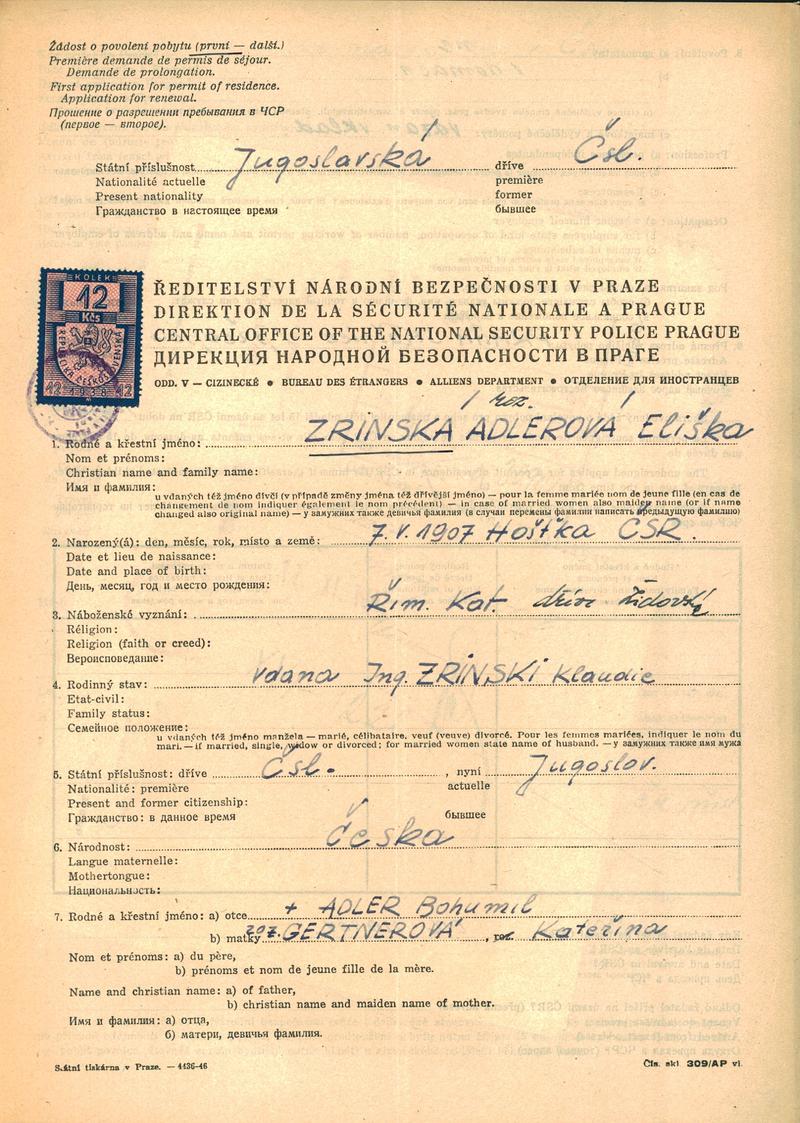 Žádost o povolení pobytu (první — další.)
Première demande de permis de séjour.
Demande de prolongation.
First application for permit of residence.
Application for renewal.
Прошение о разрешении пребывания в ЧСР
(первое — второе).
Státní příslušnost Jugoslavská dříve Čsl.
Nationalité actuelle première
Present nationality former
Гражданство в настоящее время бывшее
KOLEK
12
Kčs
REPUBLIKA ČESKOSLOVENSKÁ
12 1938 12
ŘEDITELSTVÍ NÁRODNÍ BEZPEČNOSTI V PRAZE
DIREKTION DE LA SÉCURITÉ NATIONALE A PRAGUE
CENTRAL OFFICE OF THE NATIONAL SECURITY POLICE PRAGUE
ДИРЕКЦИЯ НАРОДНОЙ БЕЗОПАСНОСТИ В ПРАГЕ
ODD. V — CIZINECKÉ ● BUREAU DES ÉTRANGERS ● ALLIENS DEPARTMENT ● ОТДЕЛЕНИЕ ДЛЯ ИНОСТРАНЦЕВ
roz.
1. Rodné a křestní jméno: ZRINSKÁ ADLEROVÁ Eliška
Nom et prénoms:
Christian name and family name:
Имя и фамилия:
u vdaných též jméno dívčí (v případě změny jména též dřívější jméno) — pour la femme mariée nom de jeune fille (en cas de
changement de nom indiquer également le nom précédent) — in case of married women also maiden name (or if name
changed also original name) — у замужних также девичья фамилия (в случаи перемены фамилии написать предыдущую фамилию)
2. Narozený(á): den, měsíc, rok, místo a země: 7. V. 1907 Hoštka ČSR.
Date et lieu de naissance:
Date and place of birth:
День, месяц, год и место рождения:
3. Náboženské vyznání: Řím. Kat. dříve židovské
Réligion:
Religion (faith or creed):
Вероисповедание:
4. Rodinný stav: vdana Ing. ZRINSKI Klaudie
Etat-civil:
Family status:
Семейное положение:
u vdaných též jméno manžela — marié, célibataire, veuf (veuve) divorcé. Pour les femmes mariées, indiquer le nom du
mari. — if married, single, widow or divorced; for married women state name of husband. — у замужних также имя мужа
5. Státní příslušnost: dříve Čsl. , nyní Jugoslov.
Nationalité: première actuelle
Present and former citizenship:
Гражданство: в данное время бывшее
6. Národnost: Česka
Langue maternelle:
Mothertongue:
Национальность:
7. Rodné a křestní jméno: a) otce + ADLER Bohumil
b) matky roz. GERTNEROVÁ , roz. Kateřina
Nom et prénoms: a) du père,
b) prénoms et nom de jeune fille de la mère.
Name and christian name: a) of father,
b) christian name and maiden name of mother.
Имя и фамилия: а) отца,
б) матери, девичья фамилия.
Státní tiskárna v Praze. — 4436-46 Čís. skl. 309/AP vi.